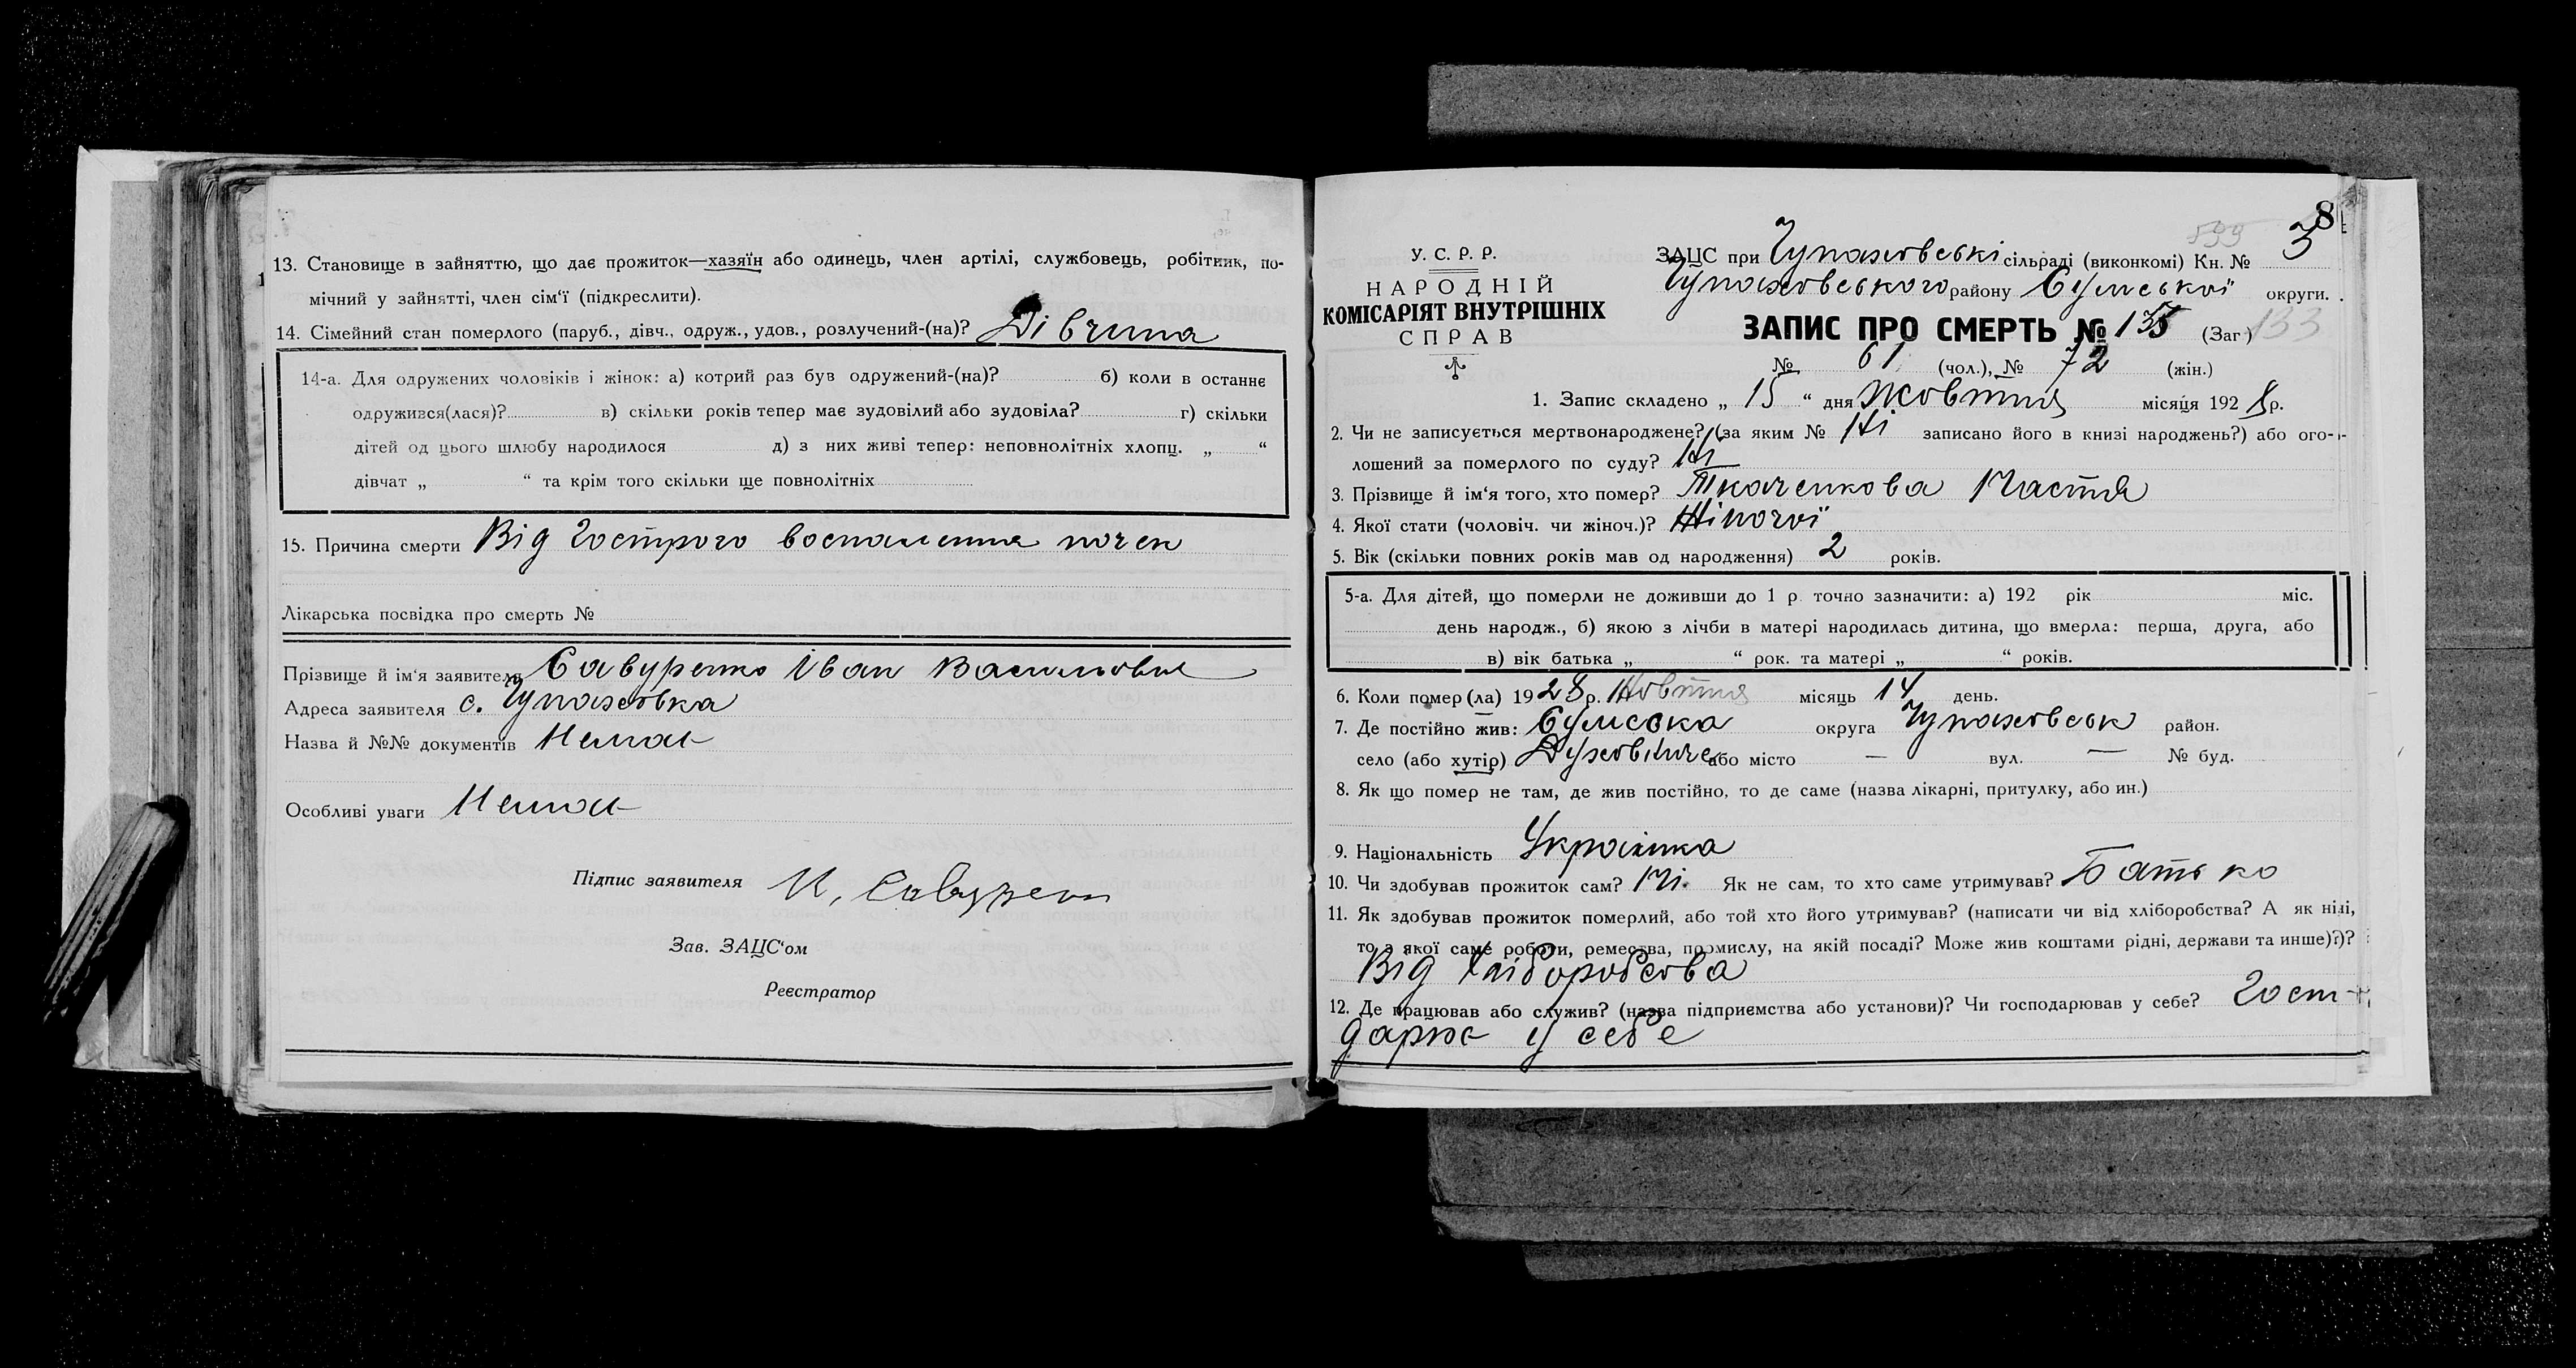 13. Становище в зайняттю, що дає прожиток—хазяїн або одинець, член артілі, службовець, робітник, по-
мічний у зайнятті, член сім'ї (підкреслити).
14. Сімейний стан померлого (паруб., дівч., одруж., удов., розлучений-(на)? Дівчина
14-а. Для одружених чоловіків і жінок: а) котрий раз був одружений-(на)? б) коли в останнє
одружився(лася)? в) скільки років тепер має зудовілий або зудовіла? г) скільки
дітей од цього шлюбу народилося д) з них живі тепер: неповнолітніх хлопц. „ “
дівчат „ “ та крім того скільки ще повнолітніх
15. Причина смерти Від Гострого воспаления почек
Лікарська посвідка про смерть №
Прізвище й ім'я заявителя Савуренко Іван Васильович
Адреса заявителя с. Чупахівка
Назва й №№ документів Немає
Особливі уваги Немає
Підпис заявителя И, Савурен
Зав. ЗАЦС'ом
Реєстратор
8
599
У. С. Р. Р.
НАРОДНІЙ
КОМІСАРІЯТ ВНУТРІШНІХ
СПРАВ
ЗАЦС при Чупаховські сільраді (виконкомі) Кн. № 3
Чупаховського району Сумської округи.
ЗАПИС ПРО СМЕРТЬ № 135 (Заг) 133
№ 61 (чол.), № 72 (жін.)
1. Запис складено „ 15 “ дня Жовтня місяця 192 8 р.
2. Чи не записується мертвонароджене? (за яким № Ні записано його в книзі народжень?) або ого-
лошений за померлого по суду? Ні
3. Прізвище й ім'я того, хто помер? Ткаченкова Настя
4. Якої стати (чоловіч. чи жіноч.)? Жіночої
5. Вік (скільки повних років мав од народження) 2 років.
5-а. Для дітей, що померли не доживши до 1 р. точно зазначити: а) 192 рік міс.
день народж., б) якою з лічби в матері народилась дитина, що вмерла: перша, друга, або
в) вік батька „ “ рок. та матері „ “ років.
6. Коли помер (ла) 1928 р. Жовтня місяць 14 день.
7. Де постійно жив: Сумська округа Чупаховськ район.
село (або хутір) або місто — вул. — № буд.
8. Як що помер не там, де жив постійно, то де саме (назва лікарні, притулку, або ин.)
9. Національність Українка
10. Чи здобував прожиток сам? Ні. Як не сам, то хто саме утримував? Батько
11. Як здобував прожиток померлий, або той хто його утримував? (написати чи від хліборобства? А як ніііі,
то з якої саме роботи, ремества, промислу, на якій посаді? Може жив коштами рідні, держави та инше)?)?
Від Хліборобсова
12. Де працював або служив? (назва підприємства або установи)? Чи господарював у себе? Госп-
дарює у себе